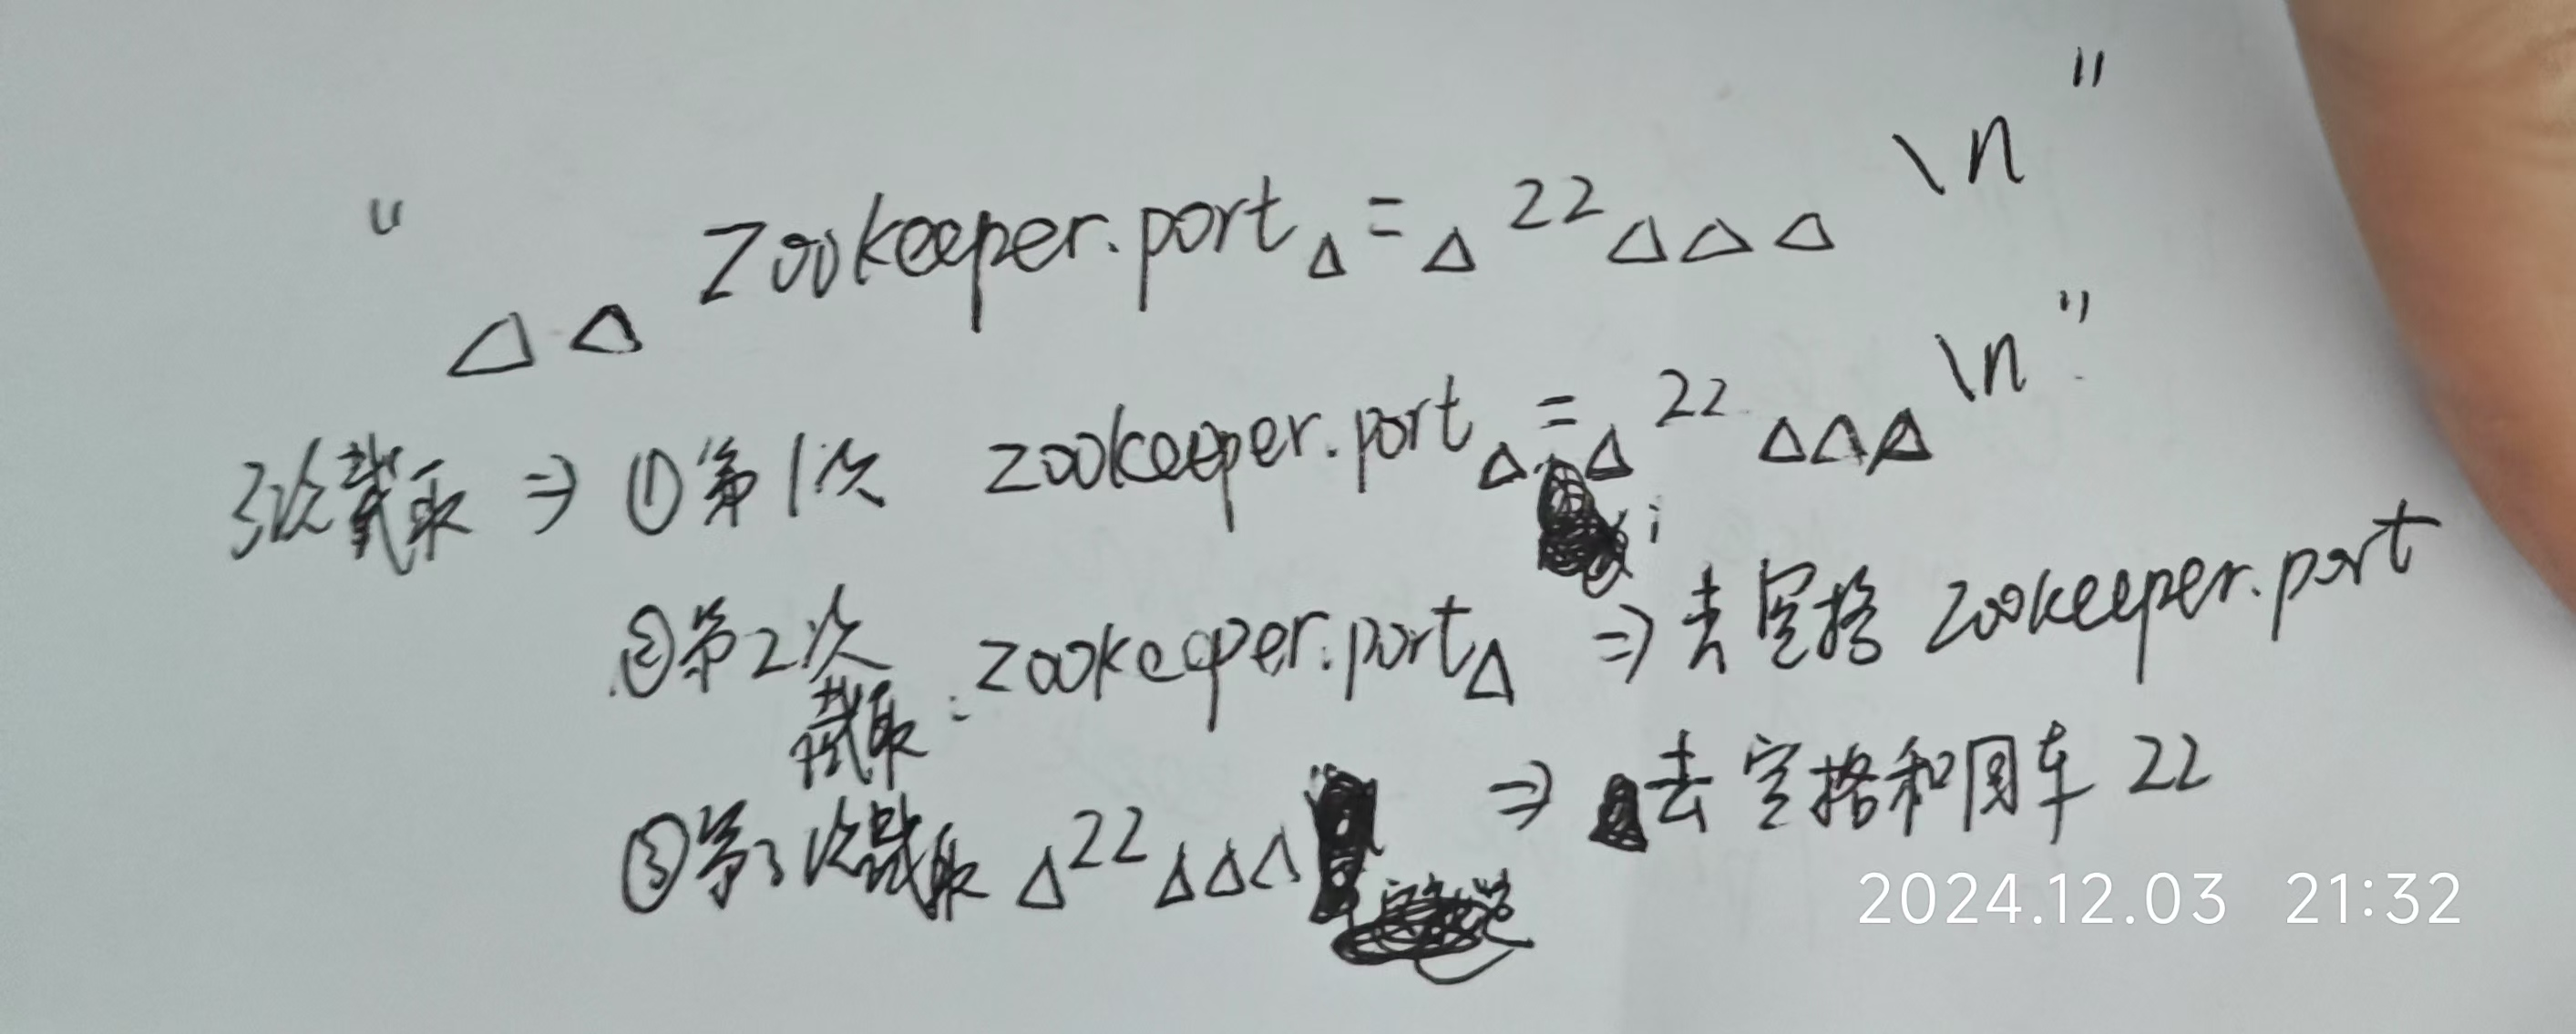 "△△ Zookeeper.port△=△22△△△\n"
3次截取 ⇒ ①第1次 zookeeper.port△=△22△△△\n"
②第2次截取: zookeeper.port△ ⇒ 去空格 zookeeper.port
③第3次截取 △22△△△ ⇒ 去空格和回车 22
2024.12.03 21:32